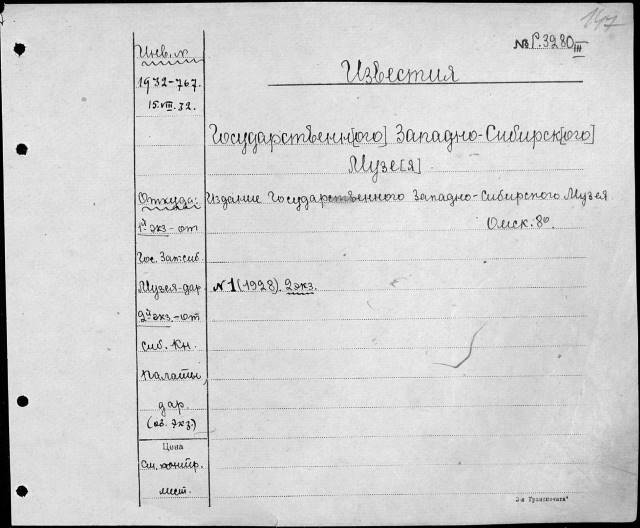 147
№ Р.3280 III
Известия
Государственн[ого] Западно-Сибирск[ого]
Музе[я]
Издание Государственного Западно-Сибирского Музея
Омск. 8º.
№ 1 (1928). 2 экз.
Инв. №
1932-767.
15.VIII.32.
Откуда:
1й экз.-от
Гос. Зап.-сиб.
Музея-дар
2й экз.-от
Сиб. Кн.
Палаты,
дар.
(об. экз.)
Цена
См. контр.
лист.
2-я Транспечать"